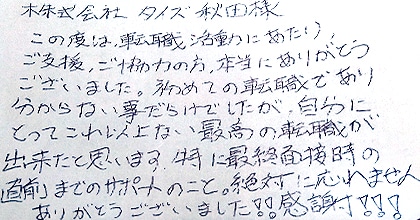 株式会社 タイズ 秋田様
この度は、転職活動にあたり、
ご支援、ご協力の方、本当にありがとう
ございました。初めての転職であり
分からない事だらけでしたが、自分に
とってこれ以上ない最高の転職が
出来たと思います。特に最終面接時の
直前までのサポートのこと。絶対に忘れません
ありがとうございました!!感謝!!!